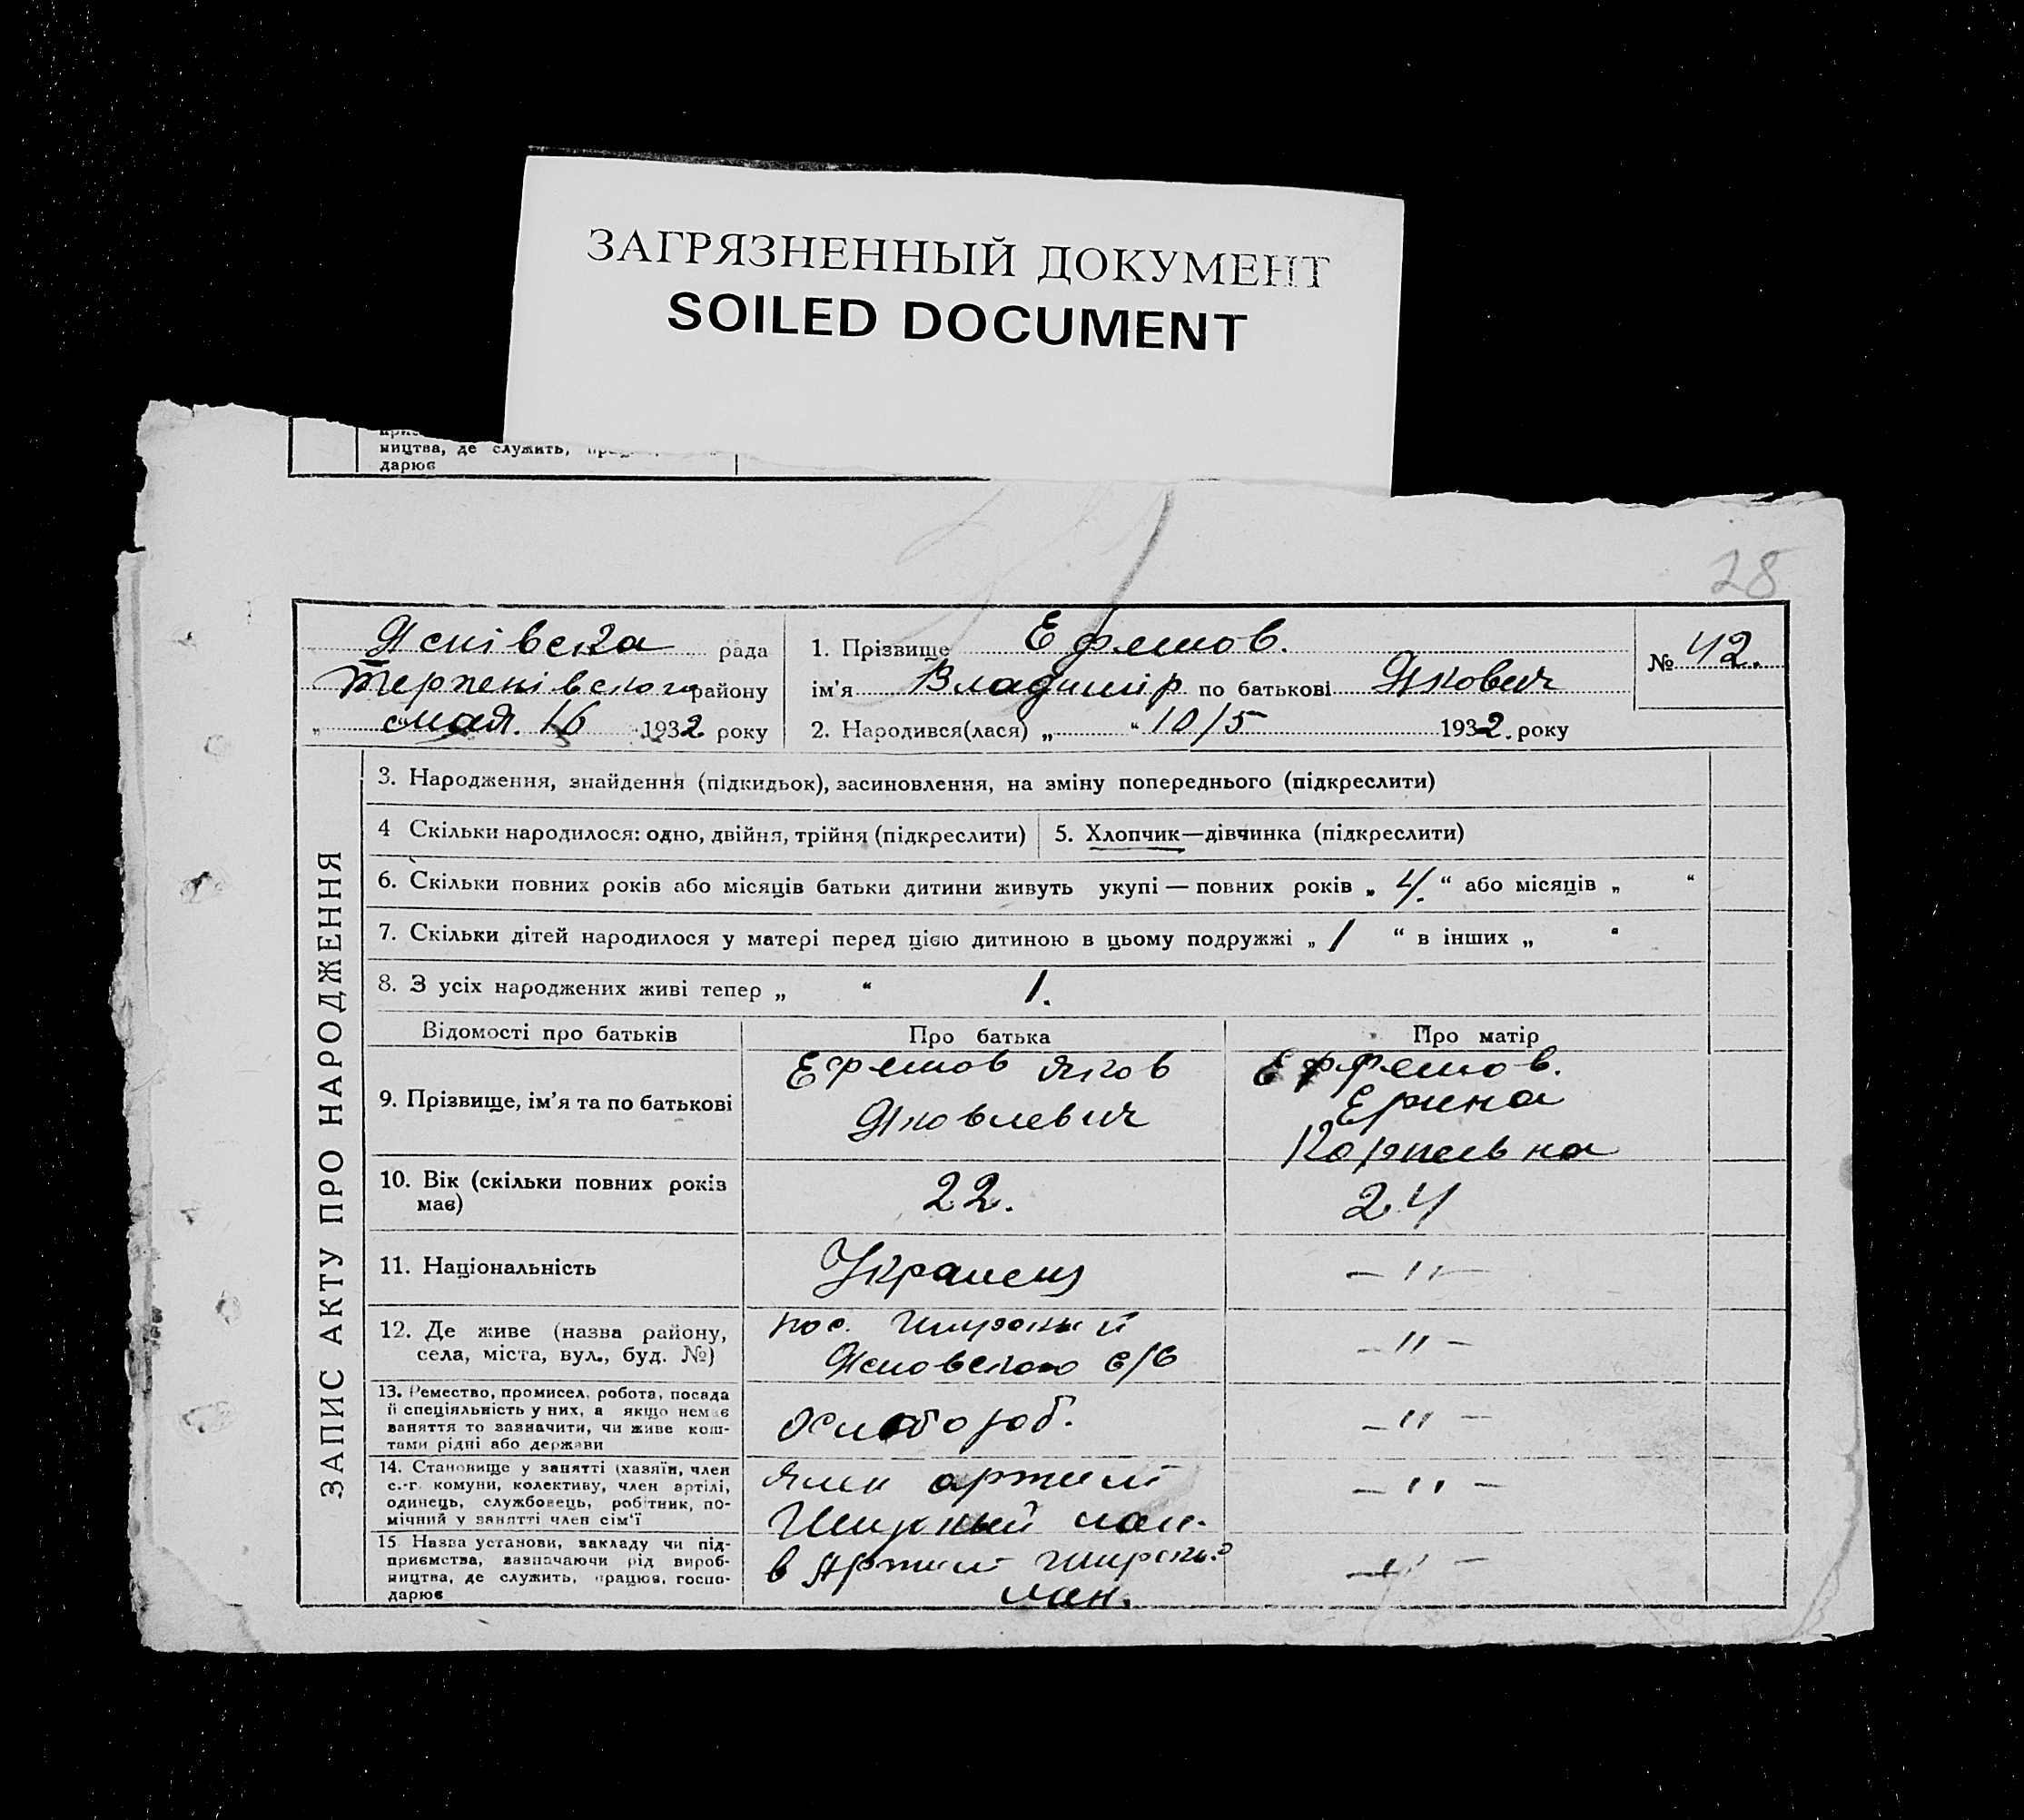 ЗАГРЯЗНЕННЫЙ ДОКУМЕНТ
SOILED DOCUMENT
ництва, де служить,
дарює
28
рада
1. Прізвище Ефемов.
№ 42.
району
ім'я Владимір по батькові Якович
мая. 16 1932 року
2. Народився(лася) „ “ 10/5 1932. року
ЗАПИС АКТУ ПРО НАРОДЖЕННЯ
3. Народження, знайдення (підкидьок), засиновлення, на зміну попереднього (підкреслити)
4 Скільки народилося: одно, двійня, трійня (підкреслити)
5. Хлопчик—дівчинка (підкреслити)
6. Скільки повних років або місяців батьки дитини живуть укупі — повних років „ 4. “ або місяців „ “
7. Скільки дітей народилося у матері перед цією дитиною в цьому подружжі „ 1 “ в інших „ “
8. З усіх народжених живі тепер „ “ 1.
Відомості про батьків
Про батька
Про матір
9. Прізвище, ім'я та по батькові
Ефемов Яков
Яковлевич
Еффемов.
Ерина
10. Вік (скільки повних років
має)
22.
24
11. Національність
Украинец
— " —
12. Де живе (назва району,
села, міста, вул., буд. №)
пос. Широкий
с/с
— " —
13. Ремество, промисел, робота, посада
й спеціяльність у них, а якщо немає
заняття то зазначити, чи живе кош-
тами рідні або держави
— " —
14. Становище у занятті (хазяїн, член
с.-г. комуни, колективу, член артілі,
одинець, службовець, робітник, по-
мічний у занятті член сім'ї
член артилі
лан.
— " —
15 Назва установи, закладу чи під-
приємства, зазначаючи рід вироб-
ництва, де служить, працює, госпо-
дарює
в Артилі
лан.
— " —